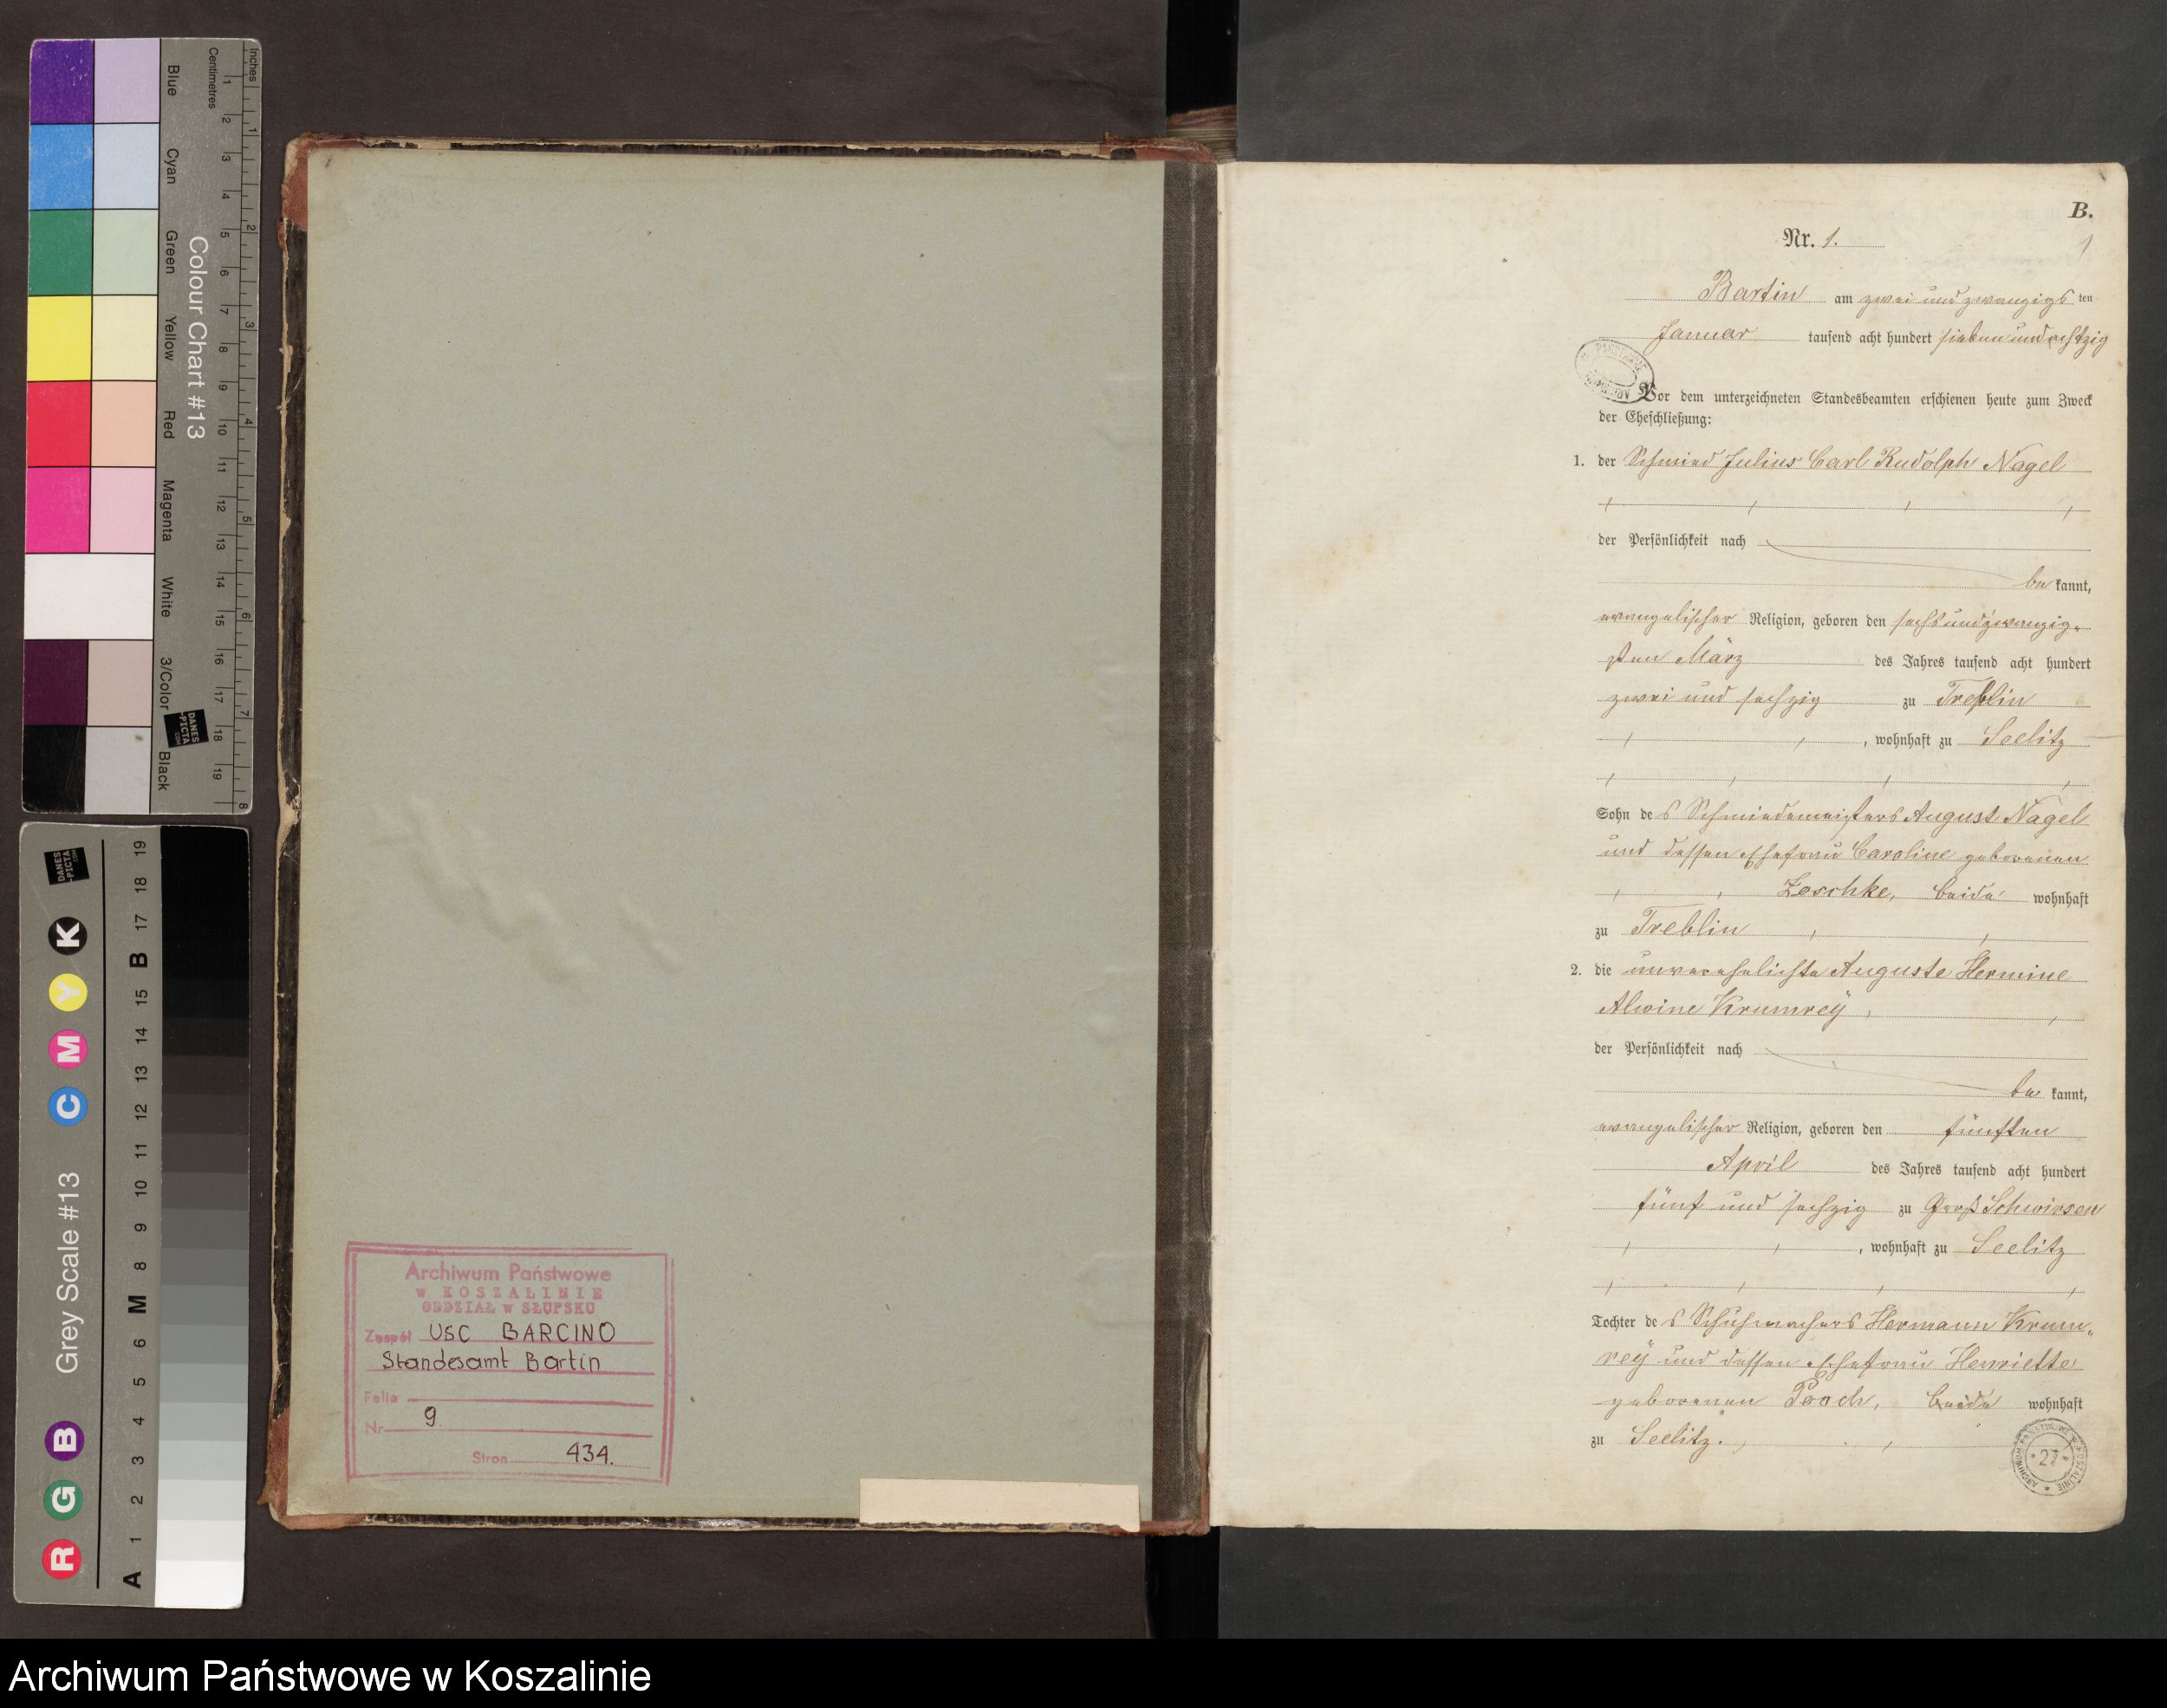 Inches
Centimetres
Colour Chart #13
Blue
Cyan
Green
Yellow
Red
Magenta
White
3/Color
Black
1 2 3 4 5 6 7 8 9 10 11 12 13 14 15 16 17 18 19
1 2 3 4 5 6 7 8
DANES
-PICTA
.COM
Grey Scale #13
R G B C M Y K
A 1 2 3 4 5 6 M 8 9 10 11 12 13 14 15 B 17 18 19
DANES
-PICTA
.COM
Archiwum Państwowe
w KOSZALINIE
ODDZIAŁ w SŁUPSKU
Zespół USC BARCINO
Standesamt Bartin
Folia
Nr 9.
Stron 434.
B.
1
Nr. 1.
Bartin am zwei und zwanzigsten
Januar tausend acht hundert sieben und achtzig
Vor dem unterzeichneten Standesbeamten erschienen heute zum Zweck
der Eheschließung:
1. der Schmied Julius Carl Rudolph Nagel
der Persönlichkeit nach
be kannt,
evangelischer Religion, geboren den sechsundzwanzig-
sten März des Jahres tausend acht hundert
zwei und sechzig zu Treblin
, wohnhaft zu Seelitz
Sohn des Schmiedemeisters August Nagel
und dessen Ehefrau Caroline geborenen
Zoschke, beide wohnhaft
zu Treblin
2. die unverehelichte Auguste Hermine
Alwine Krumreÿ,
der Persönlichkeit nach
be kannt,
evangelischer Religion, geboren den fünften
April des Jahres tausend acht hundert
fünf und sechzig zu Groß Schwirsen
, wohnhaft zu Seelitz
Tochter des Schuhmachers Hermann Krum-
reÿ und dessen Ehefrau Henriette
geborenen Proch, beide wohnhaft
zu Seelitz.
ARCHIWUM PAŃSTWOWE W KOSZALINIE
27
Archiwum Państwowe w Koszalinie